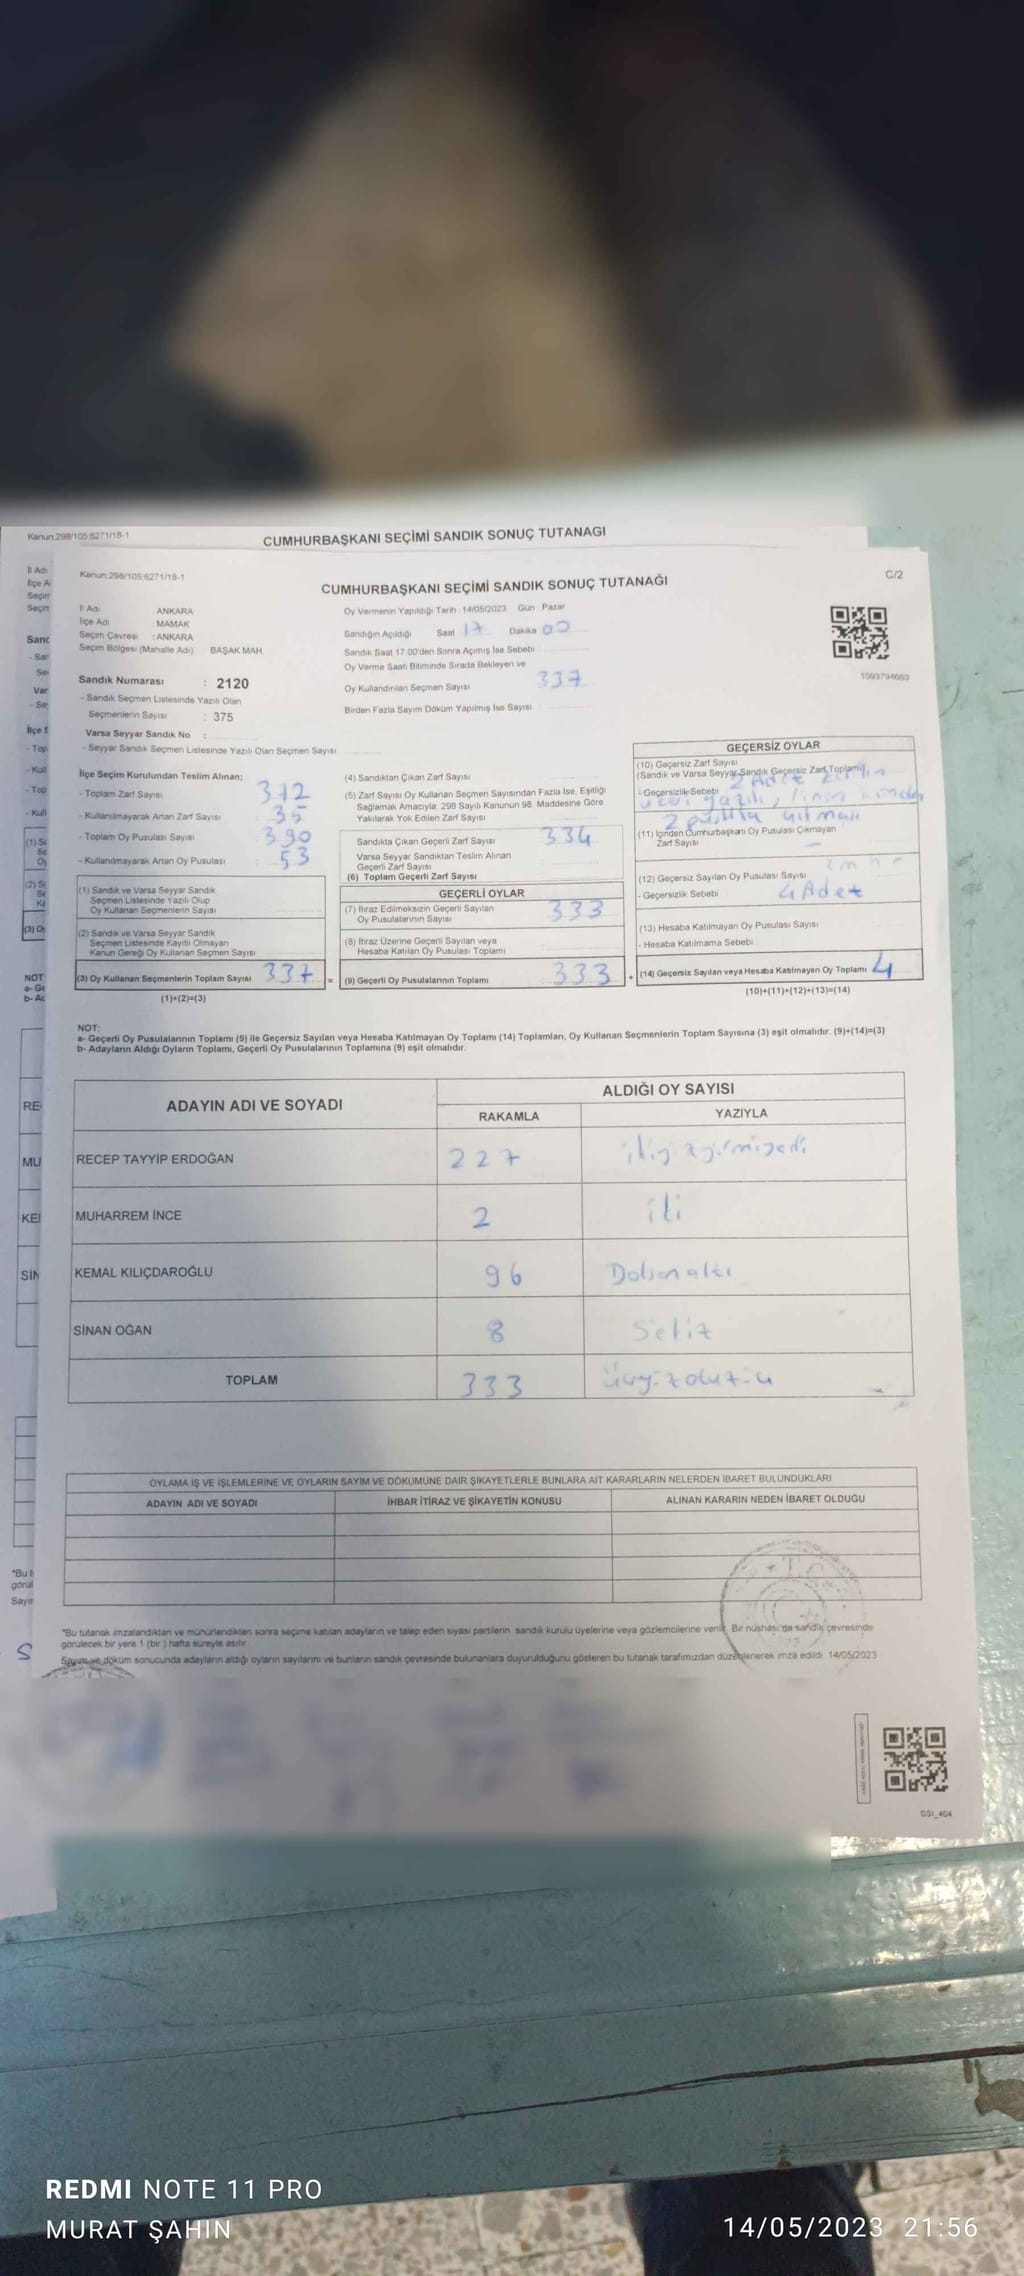 Kanun:298/105:6271/18-1
CUMHURBAŞKANI SEÇİMİ SANDIK SONUÇ TUTANAĞI
Kanun:298/105:6271/18-1
C/2
CUMHURBAŞKANI SEÇİMİ SANDIK SONUÇ TUTANAĞI
İl Adı ANKARA
İlçe Adı MAMAK
Seçim Çevresi :ANKARA
Seçim Bölgesi (Mahalle Adı) BAŞAK MAH
Sandık Numarası : 2120
- Sandık Seçmen Listesinde Yazılı Olan
Seçmenlerin Sayısı : 375
Varsa Seyyar Sandık No :
- Seyyar Sandık Seçmen Listesinde Yazılı Olan Seçmen Sayısı
Oy Vermenin Yapıldığı Tarih :14/05/2023 Gün Pazar
Sandığın Açıldığı Saat 17 Dakika 00
Sandık Saat 17:00'den Sonra Açılmış İse Sebebi
Oy Verme Saati Bitiminde Sırada Bekleyen ve
Oy Kullandırılan Seçmen Sayısı 337
Birden Fazla Sayım Döküm Yapılmış İse Sayısı
1093794663
İlçe Seçim Kurulundan Teslim Alınan;
- Toplam Zarf Sayısı 372
- Kullanılmayarak Artan Zarf Sayısı 35
- Toplam Oy Pusulası Sayısı 390
- Kullanılmayarak Artan Oy Pusulası 53
(1) Sandık ve Varsa Seyyar Sandık
Seçmen Listesinde Yazılı Olup
Oy Kullanan Seçmenlerin Sayısı
(2) Sandık ve Varsa Seyyar Sandık
Seçmen Listesinde Kayıtlı Olmayan
Kanun Gereği Oy Kullanan Seçmen Sayısı
(3) Oy Kullanan Seçmenlerin Toplam Sayısı 337 =
(1)+(2)=(3)
(4) Sandıktan Çıkan Zarf Sayısı
(5) Zarf Sayısı Oy Kullanan Seçmen Sayısından Fazla İse, Eşitliği
Sağlamak Amacıyla; 298 Sayılı Kanunun 98. Maddesine Göre
Yakılarak Yok Edilen Zarf Sayısı
Sandıkta Çıkan Geçerli Zarf Sayısı 334
Varsa Seyyar Sandıktan Teslim Alınan
Geçerli Zarf Sayısı
(6) Toplam Geçerli Zarf Sayısı
GEÇERLİ OYLAR
(7) İtiraz Edilmeksizin Geçerli Sayılan
Oy Pusulalarının Sayısı 333
(8) İtiraz Üzerine Geçerli Sayılan veya
Hesaba Katılan Oy Pusulası Toplamı
(9) Geçerli Oy Pusulalarının Toplamı 333 +
GEÇERSİZ OYLAR
(10) Geçersiz Zarf Sayısı
(Sandık ve Varsa Seyyar Sandık Geçersiz Zarf Toplamı)
2 Adet zarfın
-Geçersizlik Sebebi
üzeri yazılı,
2 pusula
(11) İçinden Cumhurbaşkanı Oy Pusulası Çıkmayan
Zarf Sayısı -
(12) Geçersiz Sayılan Oy Pusulası Sayısı
- Geçersizlik Sebebi 4 Adet
(13) Hesaba Katılmayan Oy Pusulası Sayısı
- Hesaba Katılmama Sebebi
(14) Geçersiz Sayılan veya Hesaba Katılmayan Oy Toplamı 4
(10)+(11)+(12)+(13)=(14)
NOT:
a- Geçerli Oy Pusulalarının Toplamı (9) ile Geçersiz Sayılan veya Hesaba Katılmayan Oy Toplamı (14) Toplamları, Oy Kullanan Seçmenlerin Toplam Sayısına (3) eşit olmalıdır. (9)+(14)=(3)
b- Adayların Aldığı Oyların Toplamı, Geçerli Oy Pusulalarının Toplamına (9) eşit olmalıdır.
ADAYIN ADI VE SOYADI
ALDIĞI OY SAYISI
RAKAMLA YAZIYLA
RECEP TAYYİP ERDOĞAN 227 ikiyüzyirmiyedi
MUHARREM İNCE 2 iki
KEMAL KILIÇDAROĞLU 96 Doksanaltı
SİNAN OĞAN 8 Sekiz
TOPLAM 333 Üçyüzotuzüç
OYLAMA İŞ VE İŞLEMLERİNE VE OYLARIN SAYIM VE DÖKÜMÜNE DAİR ŞİKAYETLERLE BUNLARA AİT KARARLARIN NELERDEN İBARET BULUNDUKLARI
ADAYIN ADI VE SOYADI İHBAR İTİRAZ VE ŞİKAYETİN KONUSU ALINAN KARARIN NEDEN İBARET OLDUĞU
*Bu tutanak imzalandıktan ve mühürlendikten sonra seçime katılan adayların ve talep eden siyasi partilerin sandık kurulu üyelerine veya gözlemcilerine verilir. Bir nüshası da sandık çevresinde
görülecek bir yere 1 (bir) hafta süreyle asılır
Sayım ve döküm sonucunda adayların aldığı oyların sayılarını ve bunların sandık çevresinde bulunanlara duyurulduğunu gösteren bu tutanak tarafımızdan düzenlenerek imza edildi. 14/05/2023
SSI_404
REDMI NOTE 11 PRO
MURAT ŞAHIN
14/05/2023 21:56